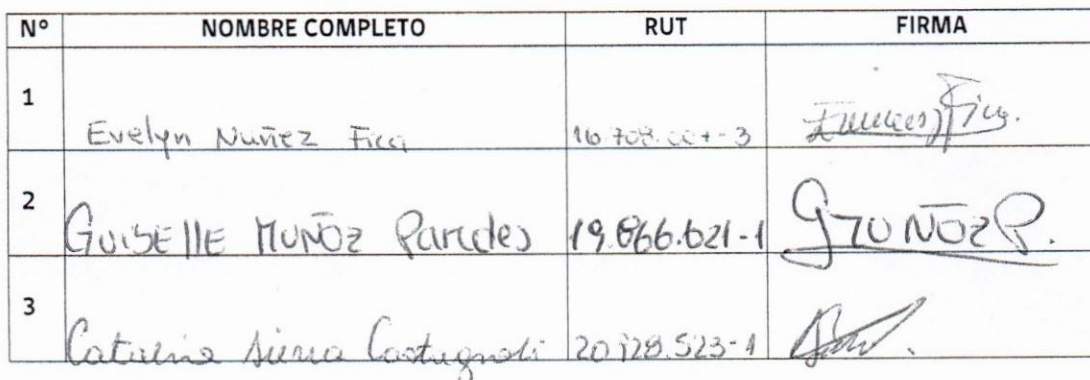 N° NOMBRE COMPLETO RUT FIRMA
1 Evelyn Nuñez Fica
2 GUISELLE MUÑOZ Paredes 19.866.621-1 GMUÑOZ P.
3 Catalina Sierra Castagnoli 20.128.523-1